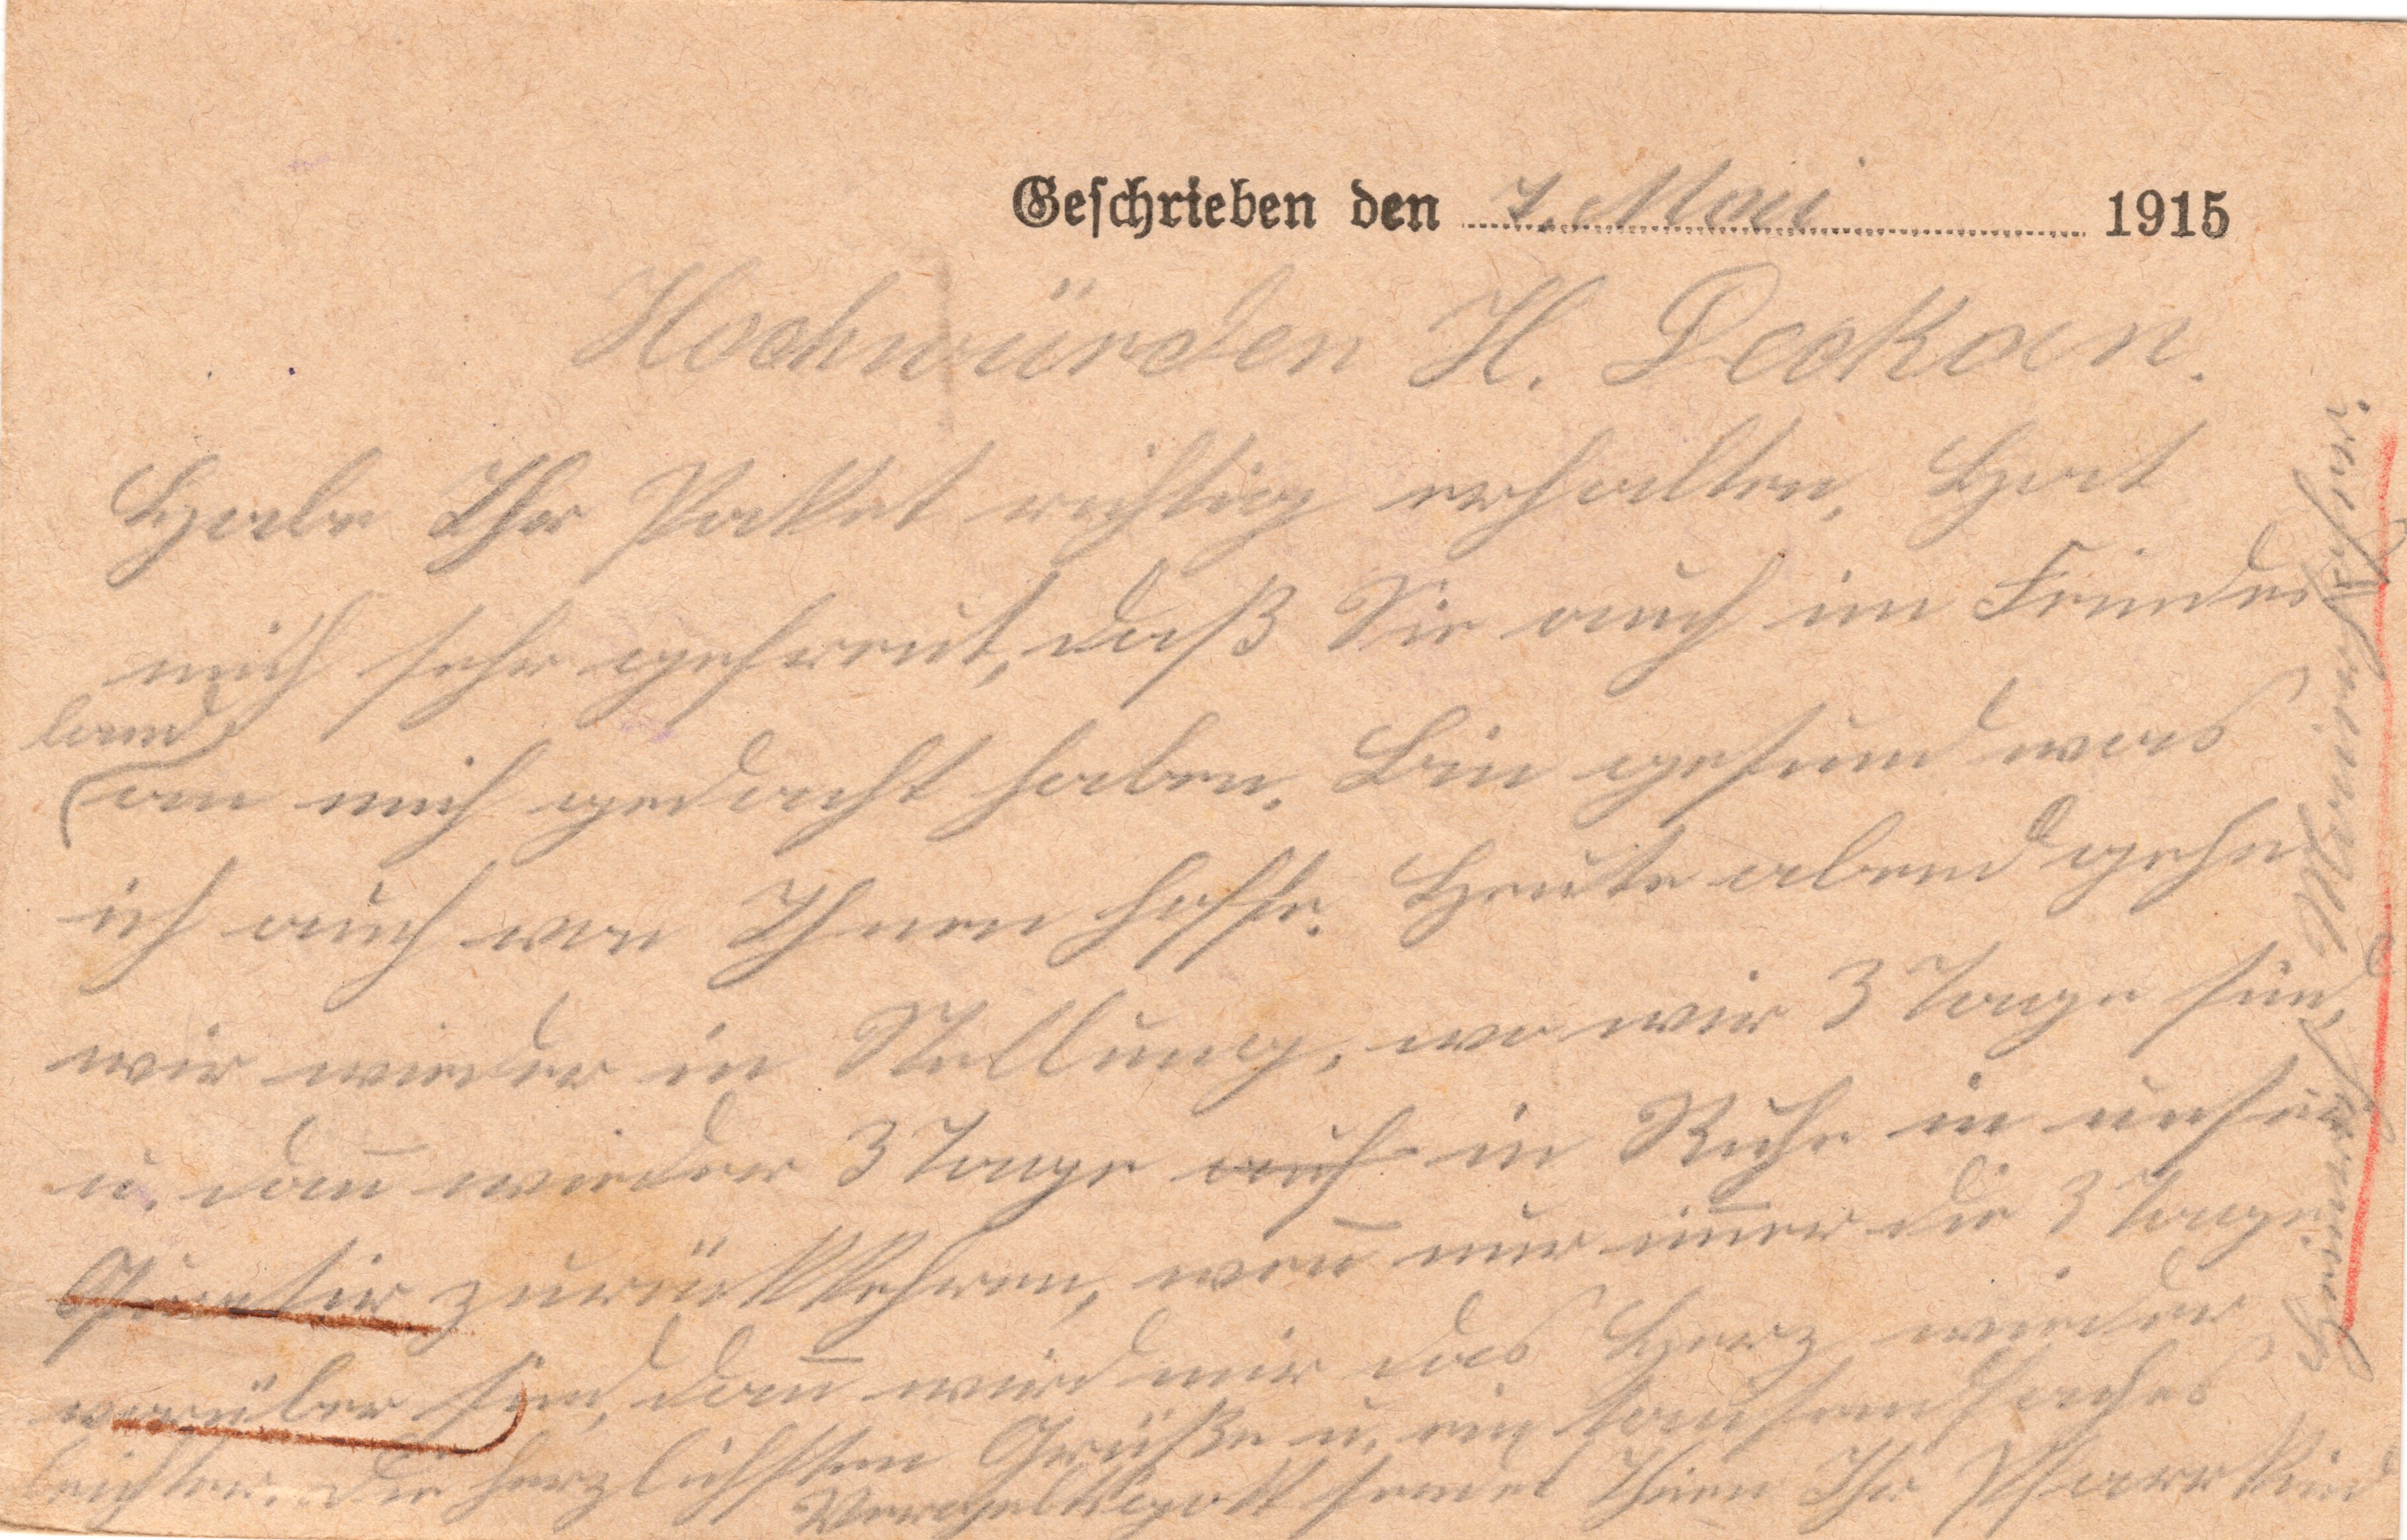 Geschrieben den 7. Mai 1915
Hochwürden H. Deckan.
Habe Ihr Packet richtig erhalten. Hat
mich sehr gefreut, daß Sie auch im Feindes
land
an mich gedacht haben. Bin gesund was
ich auch von Ihnen hoffe. Heute abend gehn
wir wieder in Stellung, wo wir 3 Tage sind,
u. dan̄ wieder 3 Tage auf in Ruhe in unser
Quatir zurückkehren, wen̄ nur im̄er die 3 Tage
vorüber sind, dan̄ wird mir das Herz wieder
leichter. Die herzlichsten Grüße u. ein tausendfaches
Vergeltsgott sendet Ihnen Ihr Pfarrkind